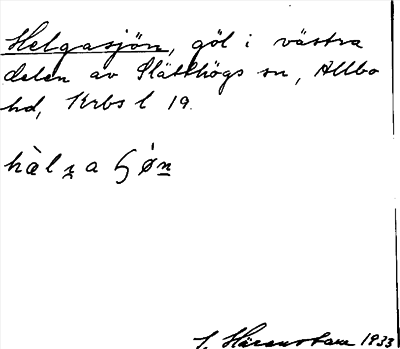 Helgasjön, göl i västra
delen av Slätthögs sn, Allbo
hd, Krbs l 19.
hàlzaʃøn
1933